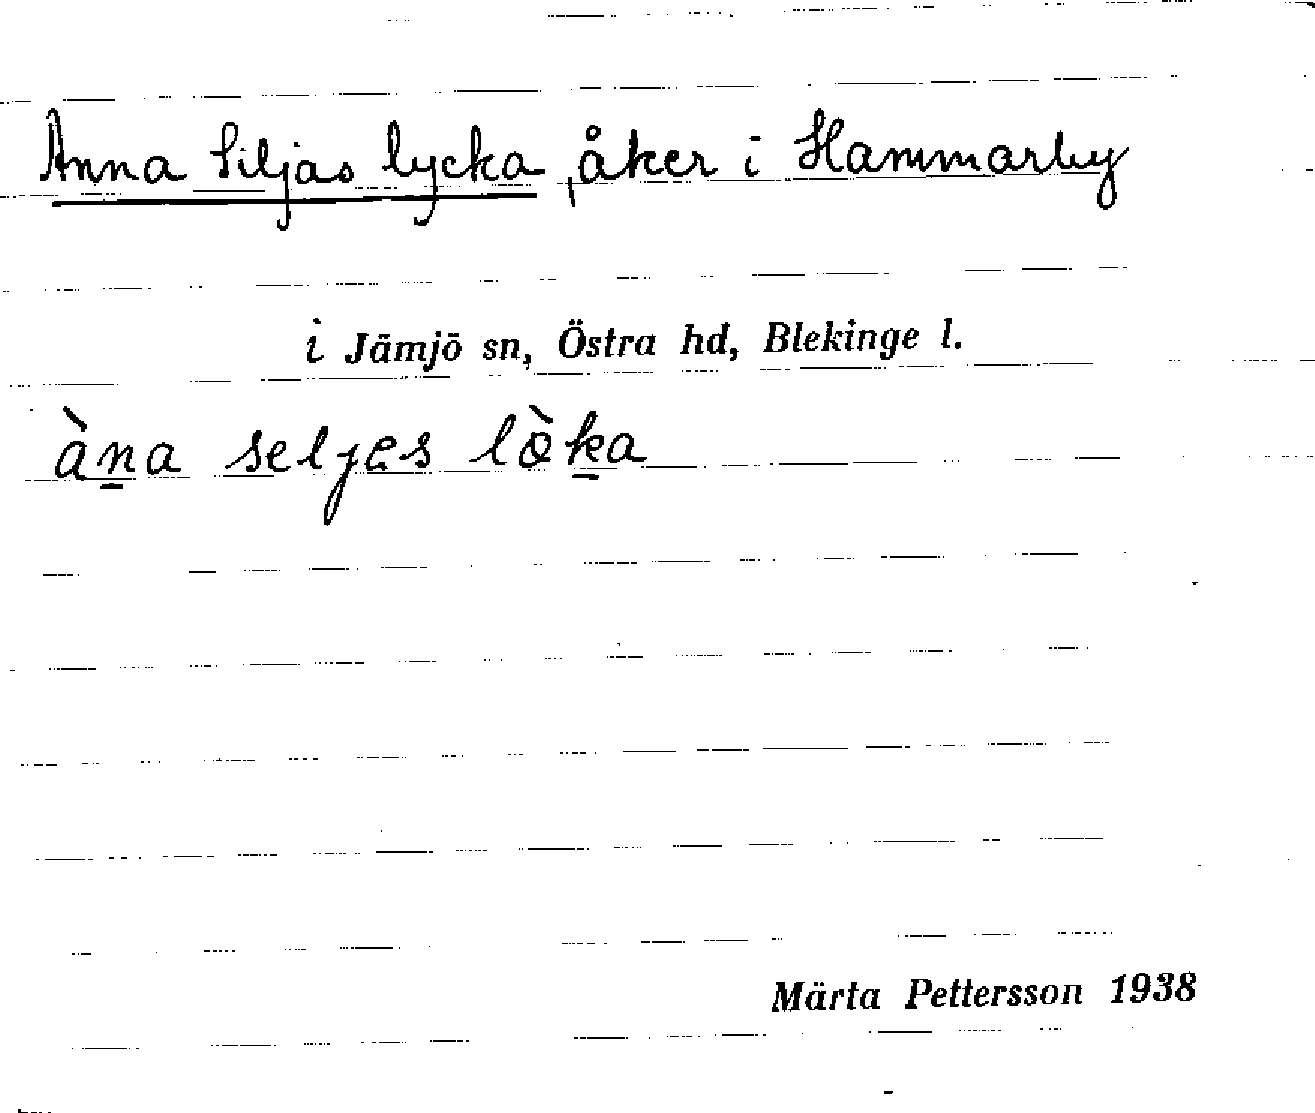 Anna Siljas lycka, åker i Hammarby
i Jämjö sn, Östra hd, Blekinge l.
àn̲a seljes lòk̲a
Märta Pettersson 1938